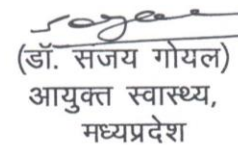 (डॉ. संजय गोयल)
आयुक्त स्वास्थ्य,
मध्यप्रदेश